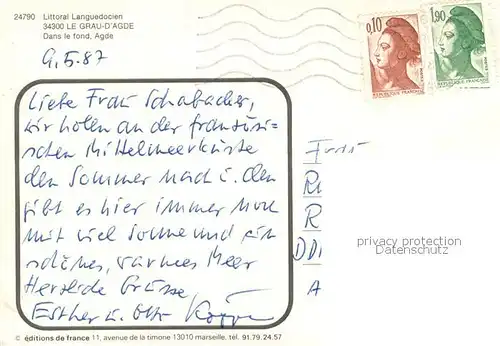 24790 Littoral Languedocien
34300 LE GRAU-D'AGDE
Dans le fond, Agde
9.5.87
0,10
1,90
REPUBLIQUE FRANÇAISE
Liebe Frau Schabacker,
wir holen an der französi-
schen Mittelmeerküste
den Sommer nach u. den
gibt es hier immer noch
mit viel Sonne und ein
schönes, warmes Meer
Herzliche Grüsse,
Esther u. Otto
Frau
R
DDR
A
privacy protection
Datenschutz
© éditions de france 11, avenue de la timone 13010 marseille. tél. 91.79.24.57